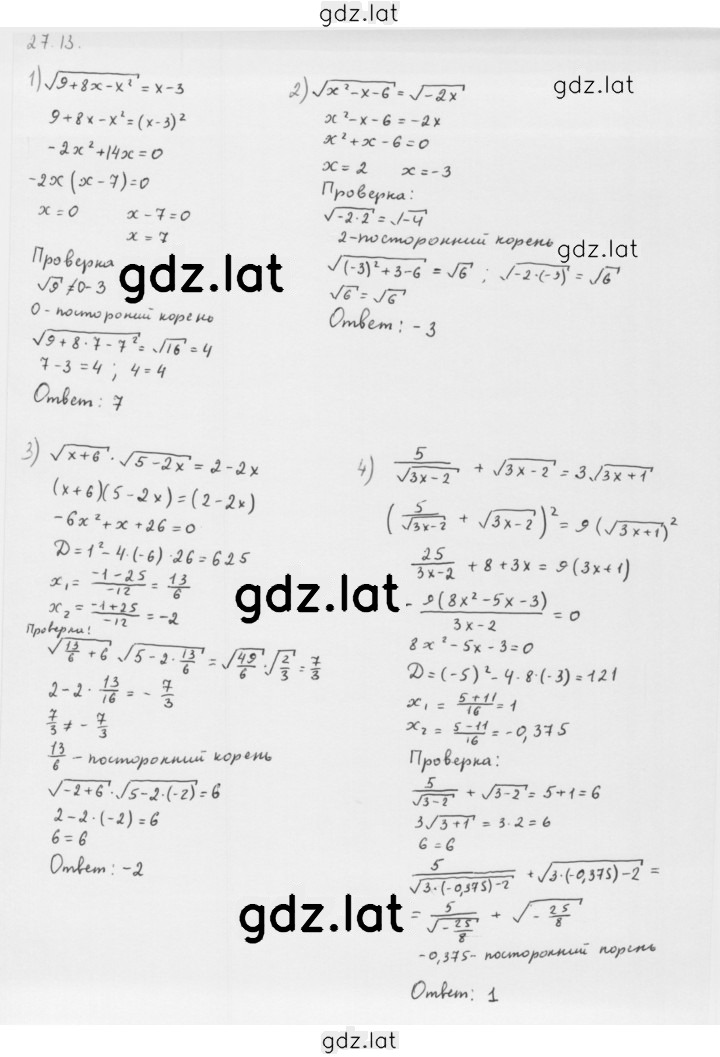 gdz.lat
27.13.
1) √(9+8x-x²) = x-3
9+8x-x²=(x-3)²
-2x²+14x=0
-2x(x-7)=0
x=0 x-7=0
x=7
Проверка
√9 ≠0-3
0-посторонний корень
√(9+8·7-7²)=√16=4
7-3=4; 4=4
Ответ: 7
2) √(x²-x-6)=√(-2x)
gdz.lat
x²-x-6=-2x
x²+x-6=0
x=2 x=-3
Проверка:
√(-2·2)=√(-4)
2-посторонний корень
gdz.lat
gdz.lat
√((-3)²+3-6)=√6; √(-2·(-3))=√6
√6=√6
Ответ: -3
3) √(x+6)·√(5-2x)=2-2x
(x+6)(5-2x)=(2-2x)
-6x²+x+26=0
D=1²-4·(-6)·26=625
x₁=(-1-25)/(-12)=13/6
x₂=(-1+25)/(-12)=-2
gdz.lat
Проверка:
√(13/6+6) √(5-2·13/6)=√(49/6)·√(2/3)=7/3
2-2·13/16=-7/3
7/3≠-7/3
13/6-посторонний корень
√(-2+6)·√(5-2·(-2))=6
2-2·(-2)=6
6=6
Ответ: -2
4) 5/√(3x-2) + √(3x-2)=3√(3x+1)
(5/√(3x-2) + √(3x-2))²=9(√(3x+1))²
25/(3x-2)+8+3x=9(3x+1)
gdz.lat
-9(8x²-5x-3)/(3x-2)=0
8x²-5x-3=0
D=(-5)²-4·8·(-3)=121
x₁=(5+11)/16=1
x₂=(5-11)/16=-0,375
Проверка:
5/√(3-2)+√(3-2)=5+1=6
3√(3+1)=3·2=6
6=6
5/√(3·(-0,375)-2)+√(3·(-0,375)-2)=
gdz.lat
=5/√(-25/8)+√(-25/8)
-0,375-посторонний порень
Ответ: 1
gdz.lat